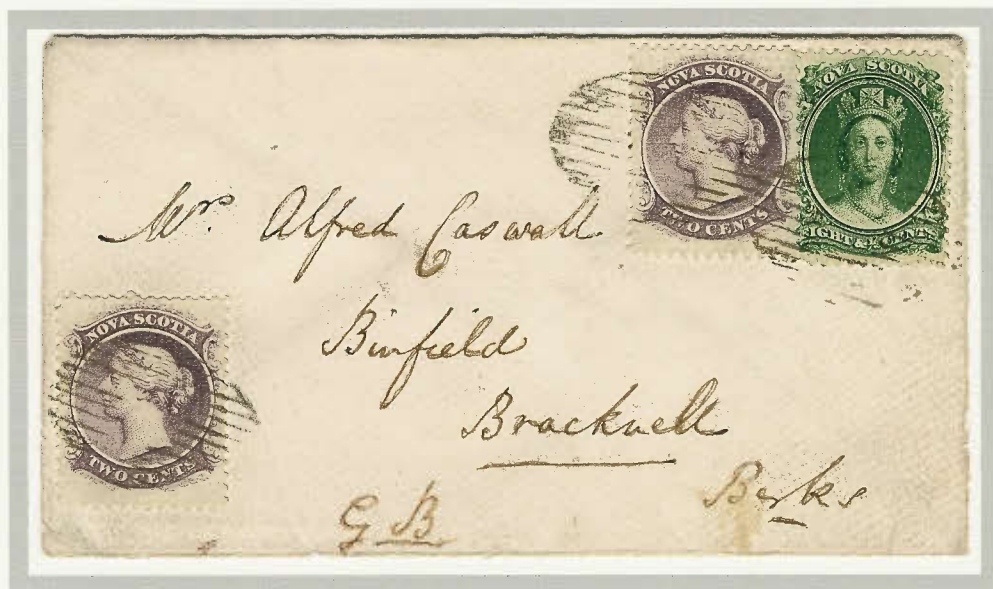 NOVA SCOTIA
TWO CENTS
NOVA SCOTIA
EIGHT & ½ CENTS
Mrs. Alfred Caswall
Binfield
Bracknell
Berks
G B
NOVA SCOTIA
TWO CENTS